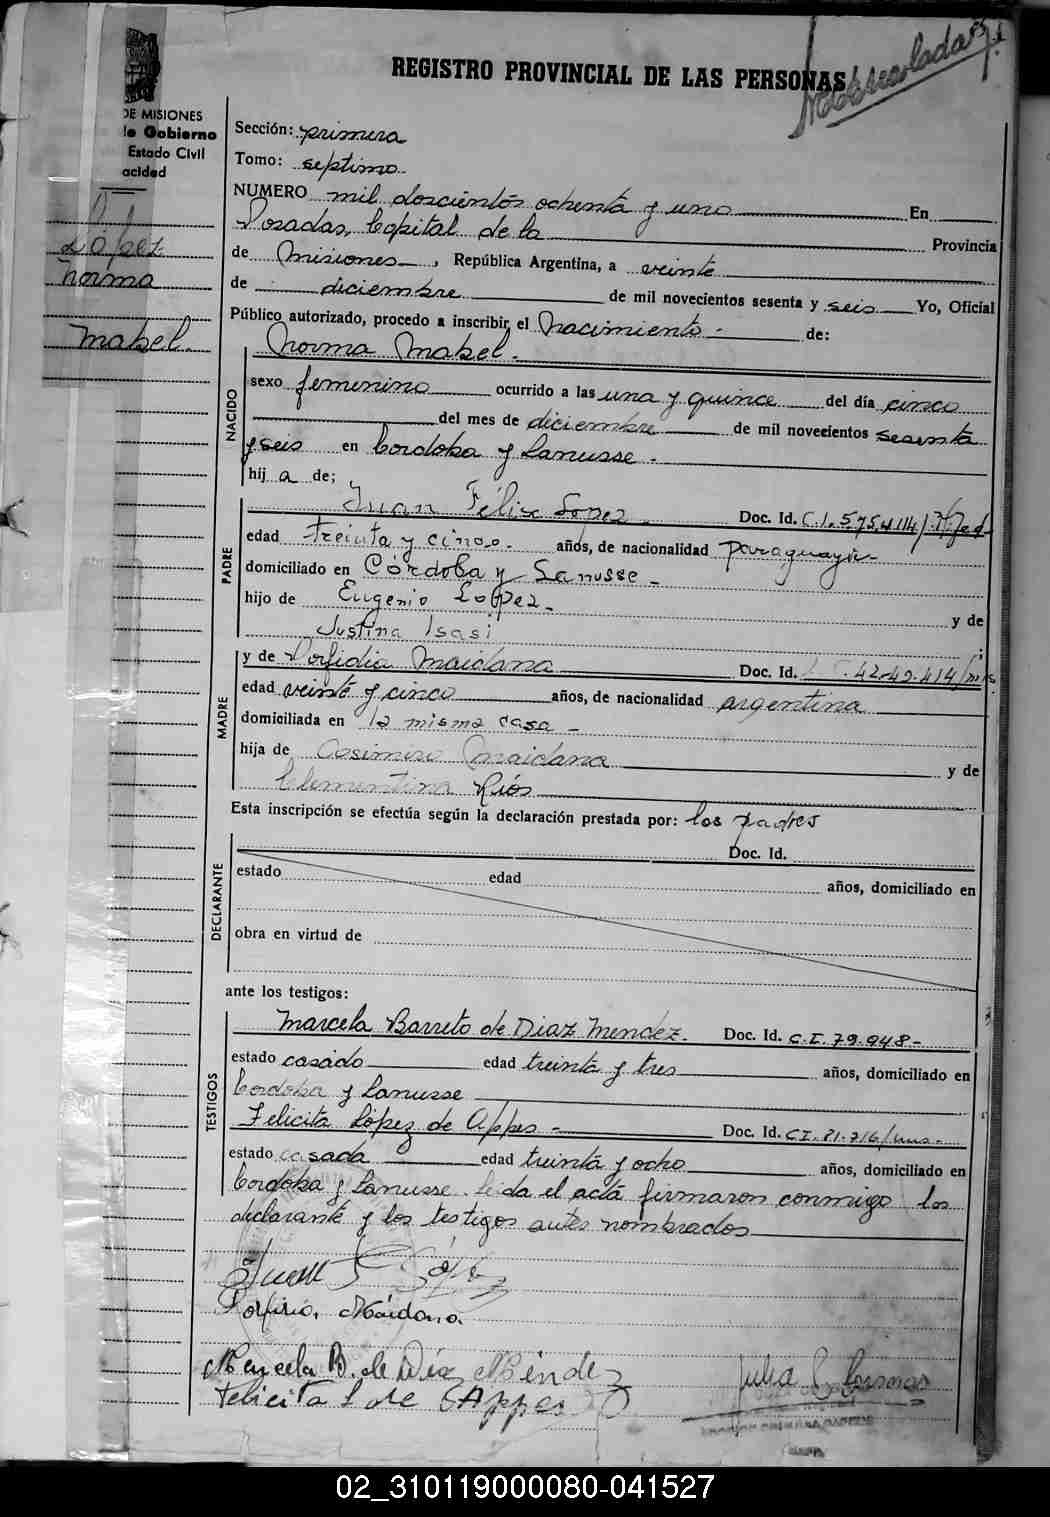 REGISTRO PROVINCIAL DE LAS PERSONAS
DE MISIONES
de Gobierno
Estado Civil
acidad
López
Norma
Mabel.
Sección: primera
Tomo: septimo
NUMERO mil doscientos ochenta y uno En
Posadas, Capital de la Provincia
de Misiones, República Argentina, a veinte
de diciembre de mil novecientos sesenta y seis Yo, Oficial
Público autorizado, procedo a inscribir el Nacimiento - de:
NACIDO
Norma Mabel.
sexo femenino ocurrido a las una y quince del día cinco
del mes de diciembre de mil novecientos sesenta
y seis en Cordoba y Lanusse.
hij a de;
PADRE
Juan Félix Lopez Doc. Id. C.I. 575.414/
edad treinta y cinco. años, de nacionalidad paraguaya
domiciliado en Córdoba y Lanusse -
hijo de Eugenio López - y de
Justina Isasi ;
MADRE
y de Porfidia Maidana Doc. Id. 42.49.414/mis.
edad veinte y cinco años, de nacionalidad argentina
domiciliada en la misma casa -
hija de Casimiro Maidana y de
Clementina Ríos
Esta inscripción se efectúa según la declaración prestada por: los padres
DECLARANTE
Doc. Id.
estado edad años, domiciliado en
obra en virtud de
ante los testigos:
TESTIGOS
Marcela Barreto de Diaz Mendez. Doc. Id. C.I. 79.948-
estado casado edad treinta y tres años, domiciliado en
Cordoba y Lanusse
Felicita López de Appes - Doc. Id. CI. 81.716/mis.-
estado casada edad treinta y ocho años, domiciliado en
Cordoba y Lanusse. Leida el acta firmaron conmigo los
declarante y los testigos antes nombrados
Juan F. López
Porfiria Maidana
Marcela B. de Díaz Méndez
Felicita L de Appes
Julia
02_310119000080-041527